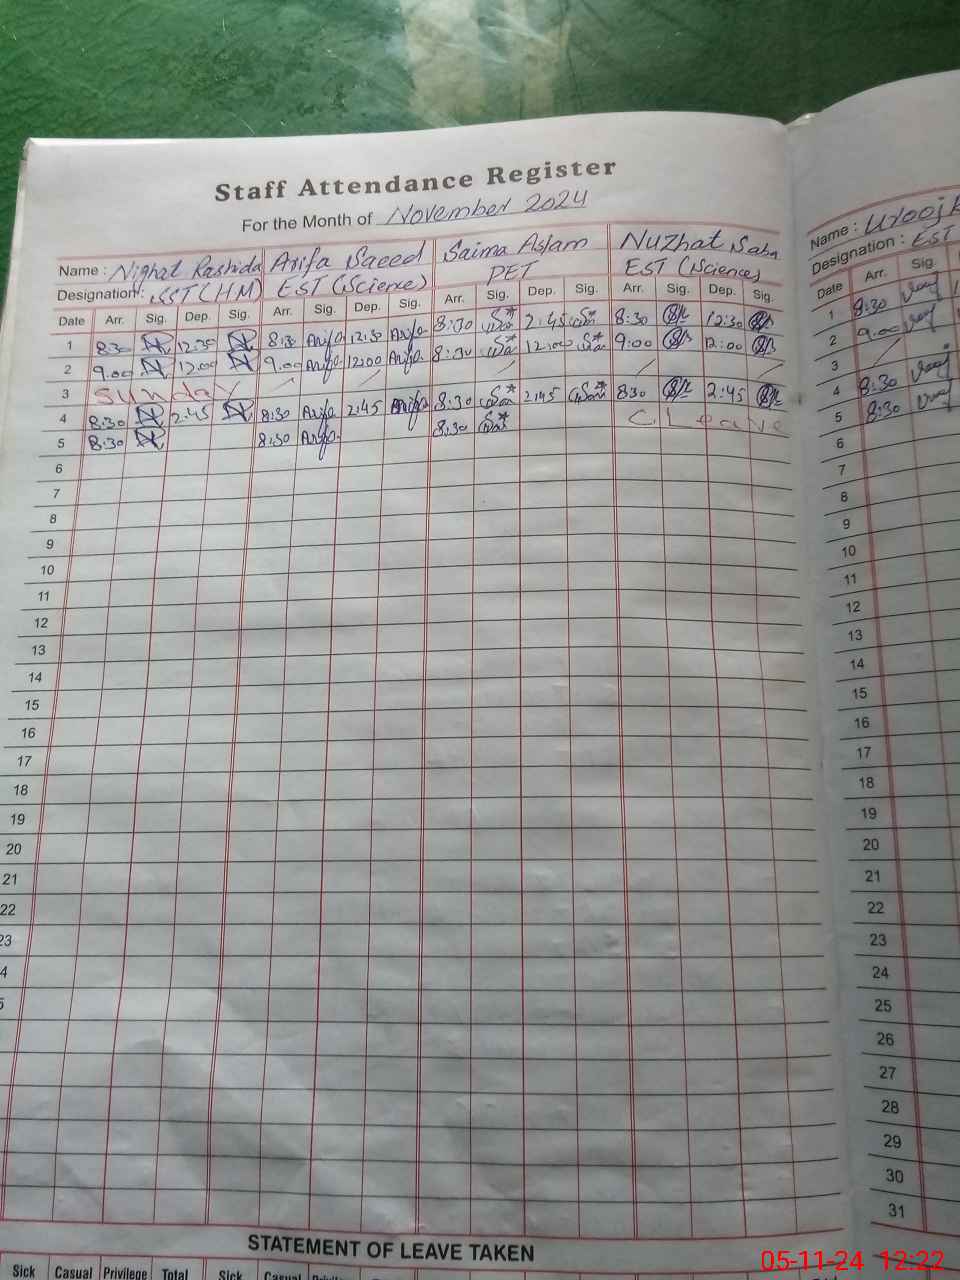 Staff Attendance Register
For the Month of November 2024
Name : Nighat Rashida Arifa Saeed Saima Aslam Nuzhat Saba
Designation : SST (HM) EST (Science) PET EST (Science)
Date Arr. Sig. Dep. Sig. Arr. Sig. Dep. Sig. Arr. Sig. Dep. Sig. Arr. Sig. Dep. Sig.
1 8:30 12:30 8:30 Arifa 12:30 Arifa 8:30 2:45 8:30 12:30
2 9:00 12:00 9:00 Arifa 12:00 Arifa 8:30 12:00 9:00 12:00
3 Sunday
4 8:30 2:45 8:30 Arifa 2:45 Arifa 8:30 2:45 8:30 2:45
5 8:30 8:30 Arifa 8:30 C. Leave
6
7
8
9
10
11
12
13
14
15
16
17
18
19
20
21
22
23
4
5
STATEMENT OF LEAVE TAKEN
Sick Casual Privilege Total Sick Casual
Name : Urooj
Designation : EST
Date Arr. Sig.
1 8:30
2 9:00
3
4 8:30
5 8:30
6
7
8
9
10
11
12
13
14
15
16
17
18
19
20
21
22
23
24
25
26
27
28
29
30
31
05-11-24 12:22